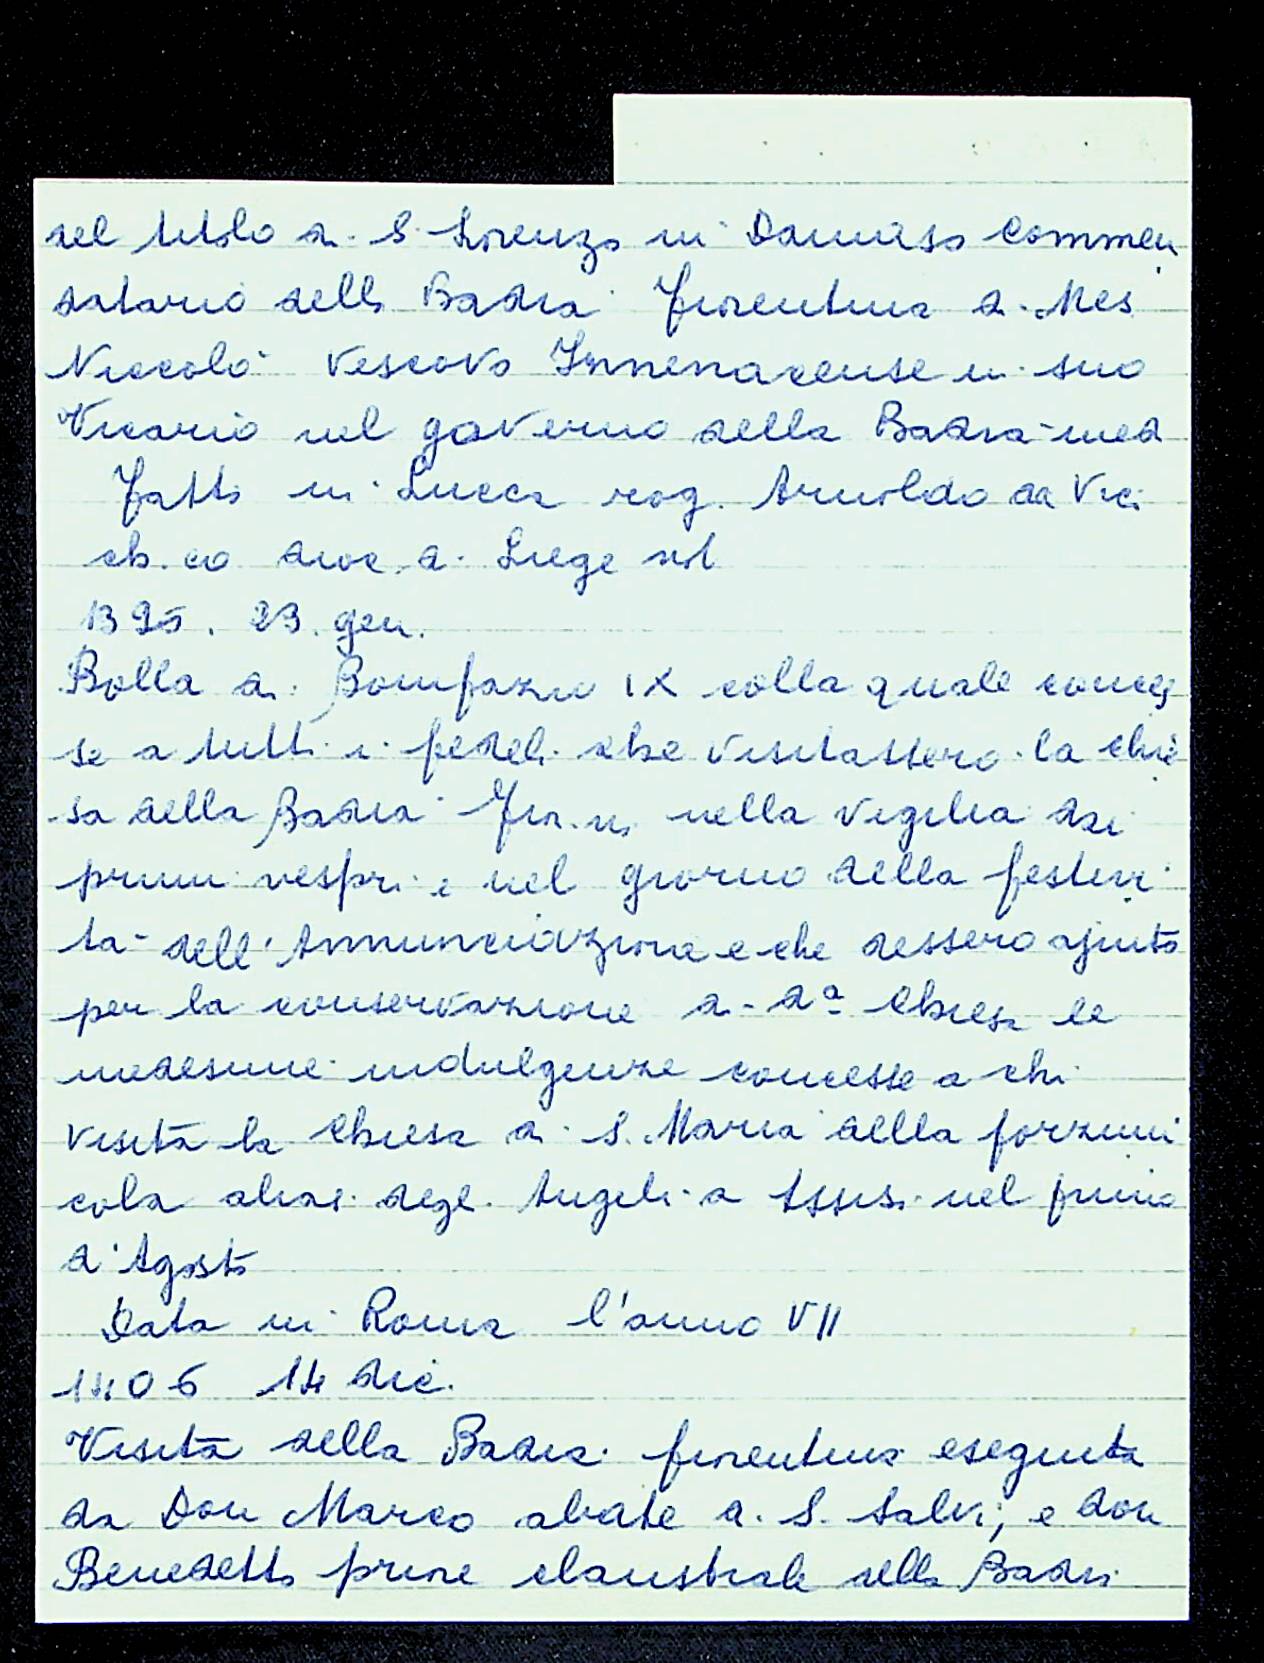 del titolo di S. Lorenzo in Damaso Commen
datario della Badia fiorentina di Mes
Niccolò Vescovo in suo
Vicario nel governo della Badia med
fatto in Lucca rog. Arnoldo da
dioc. di Liege not
1395. 23. gen.
Bolla di Bonifazio IX colla quale conces
se a tutti i fedeli che visitassero la chie
sa della Badia Fior.na nella vigilia dai
primi vespri e nel giorno della festivi
tà dell'Annunciazione e che dessero ajuto
per la conservazione di d.ª Chiesa le
medesime indulgenze concesse a chi
visita la Chiesa di S. Maria della forziun
cola alias degl. Angeli a Assisi nel primo
d'Agosto
Data in Roma l'anno VII
1406 14 dic.
Visita della Badia fiorentina eseguita
da Don Marco abate di S. Salvi, e don
Benedetto priore claustrale della Badia